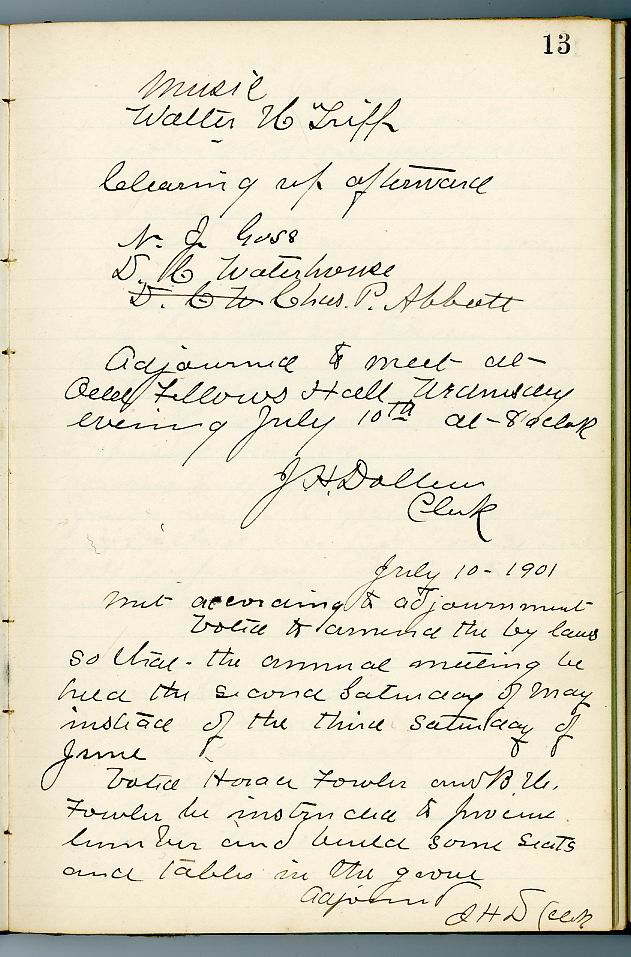 13
Music
Walter H Tripp
Clearing up afterward
N. J. Goss
D. C Waterhouse
D. C W Chas. P. Abbott
Adjourned to meet at
Odd Fellows Hall Wednsday
evening July 10th at 8 oclok
J. H. Dollen
Clerk
July 10 - 1901
Met according to adjournment
Voted to amend the by laws
so that the annual meeting be
held the second Saturday of May
instead of the third Saturday of
June
Voted Horace Fowler and B.
Fowler be instructed to procure
lumber and build some seats
and tables in the grove
Adjourned
J H D Clerk